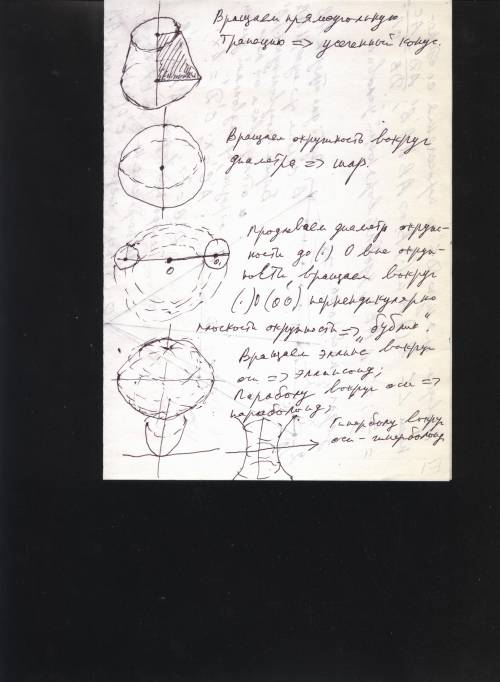 Вращаем прямоугольную
Трапецию => усеченный конус.
Вращаем окружность вокруг
диаметра => шар.
Продлеваем диаметр окруж-
ности до (·) О вне окруж-
ности, вращаем вокруг
(·) О перпендикулярно
плоскость окружность => "бублик".
Вращаем эллипс вокруг
оси => эллипсоид;
Параболу вокруг оси =>
параболоид;
Гиперболу вокруг
оси - гиперболоид
О
О₁